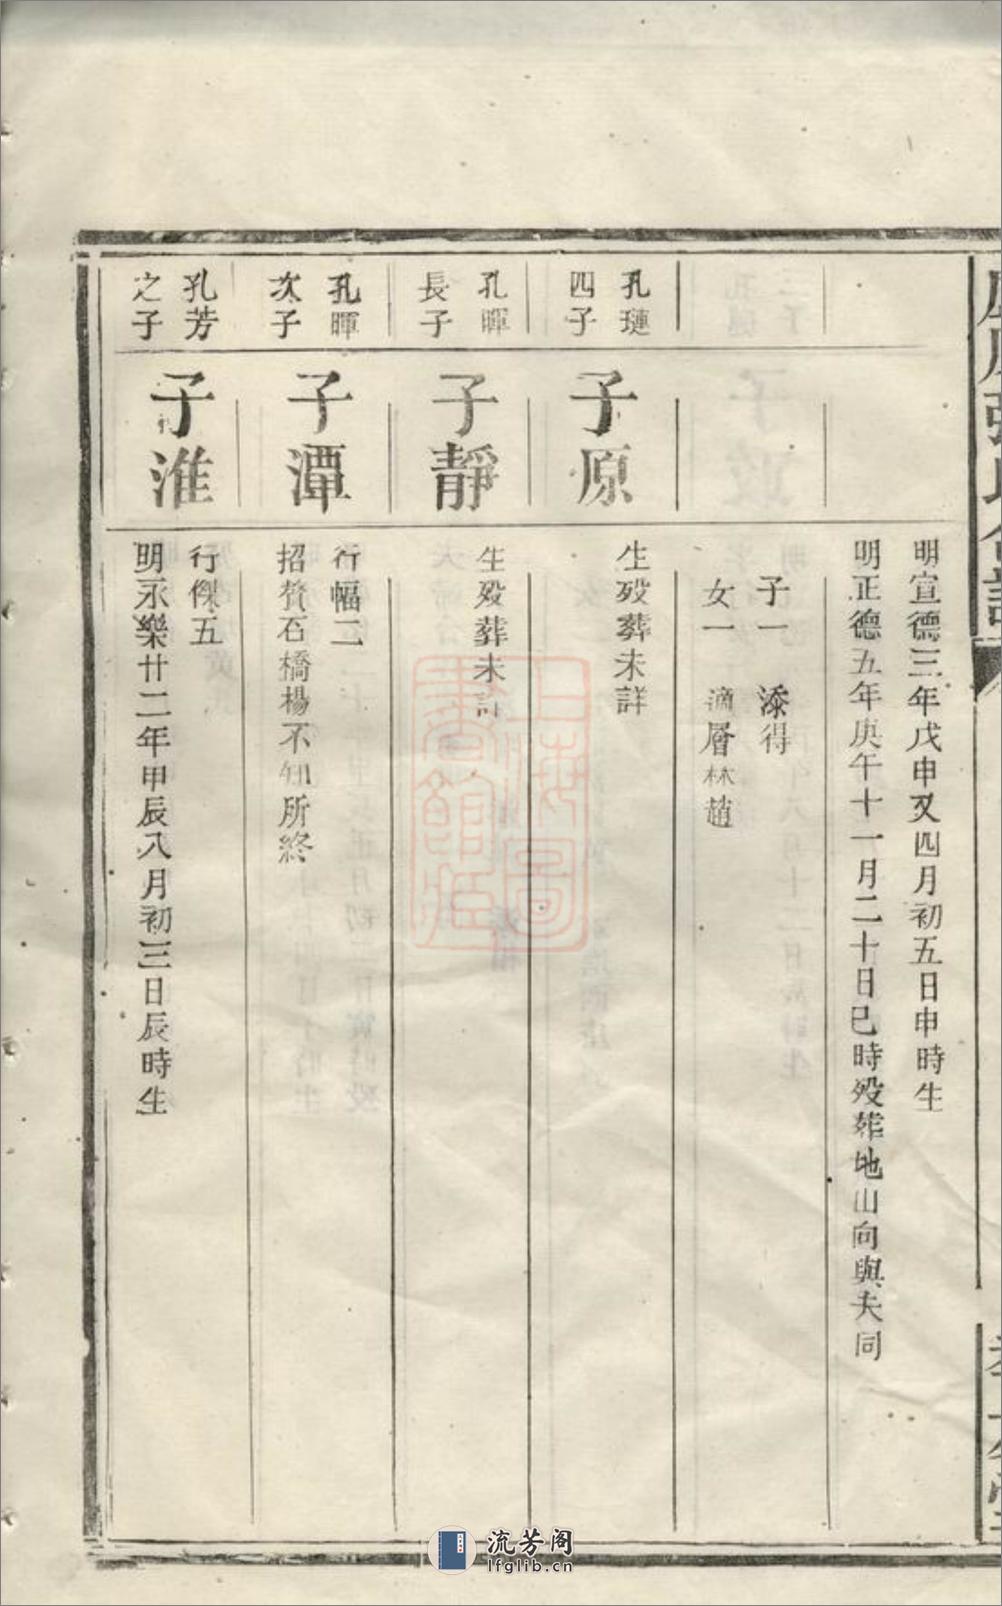 明宣德三年戊申又四月初五日申時生
明正德五年庚午十一月二十日巳時歿葬地山向與夫同
子一 添得
女一 適層林趙
孔璉
四子
子原
生歿葬未詳
孔暉
長子
子靜
生歿葬未詳
孔暉
次子
子潭
行幅二
招贅石橋楊不知所終
孔芳
之子
子淮
行傑五
明永樂廿二年甲辰八月初三日辰時生
上海圖書館藏
流芳阁
lfglib.cn